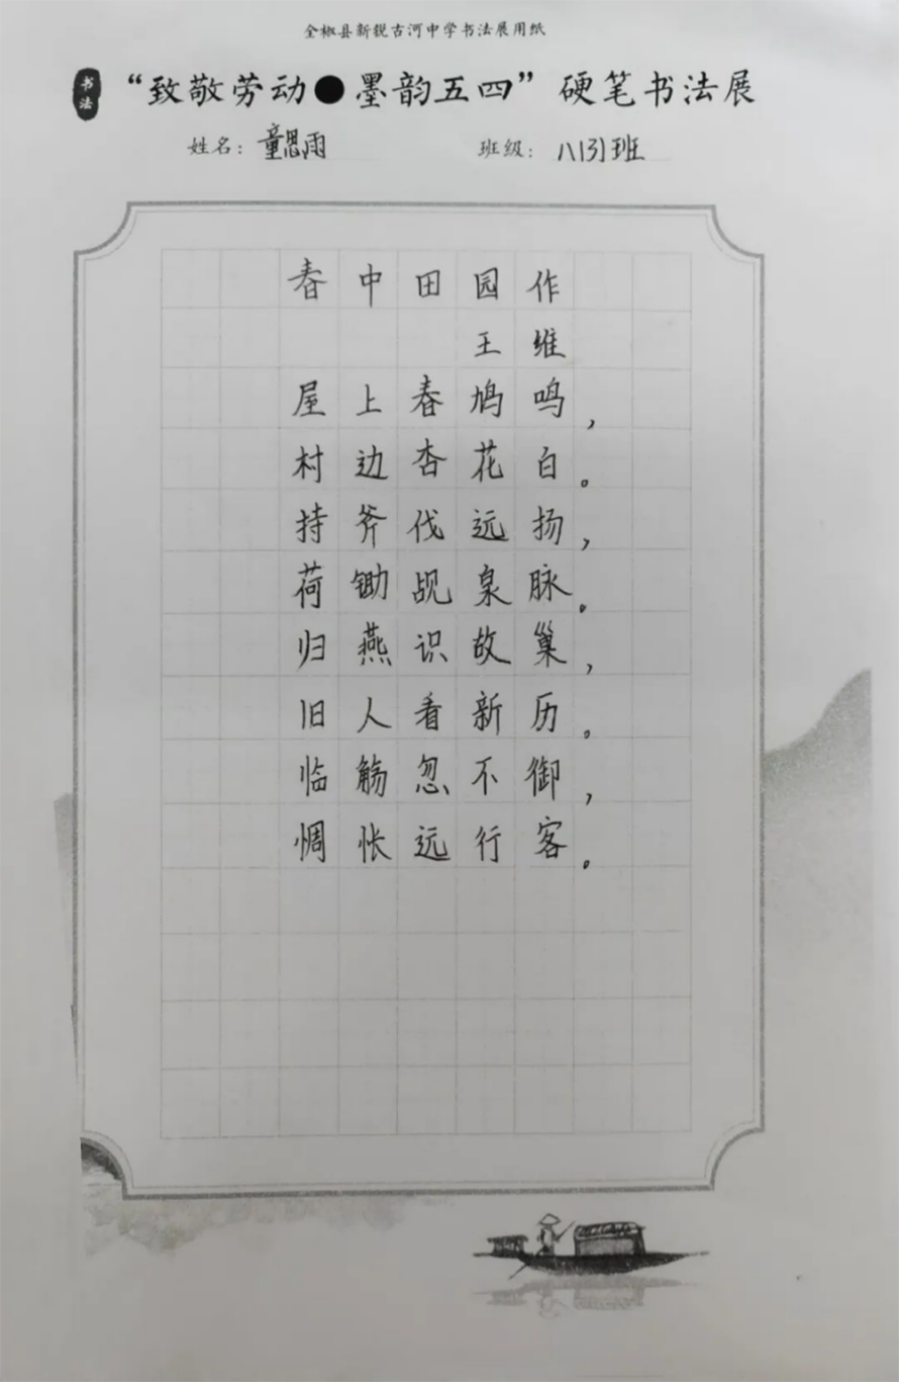 全椒县新锐古河中学书法展用纸
书法
“致敬劳动●墨韵五四”硬笔书法展
姓名：童思雨 班级：八(3)班
春中田园作
王维
屋上春鸠鸣，
村边杏花白。
持斧伐远扬，
荷锄觇泉脉。
归燕识故巢，
旧人看新历。
临觞忽不御，
惆怅远行客。